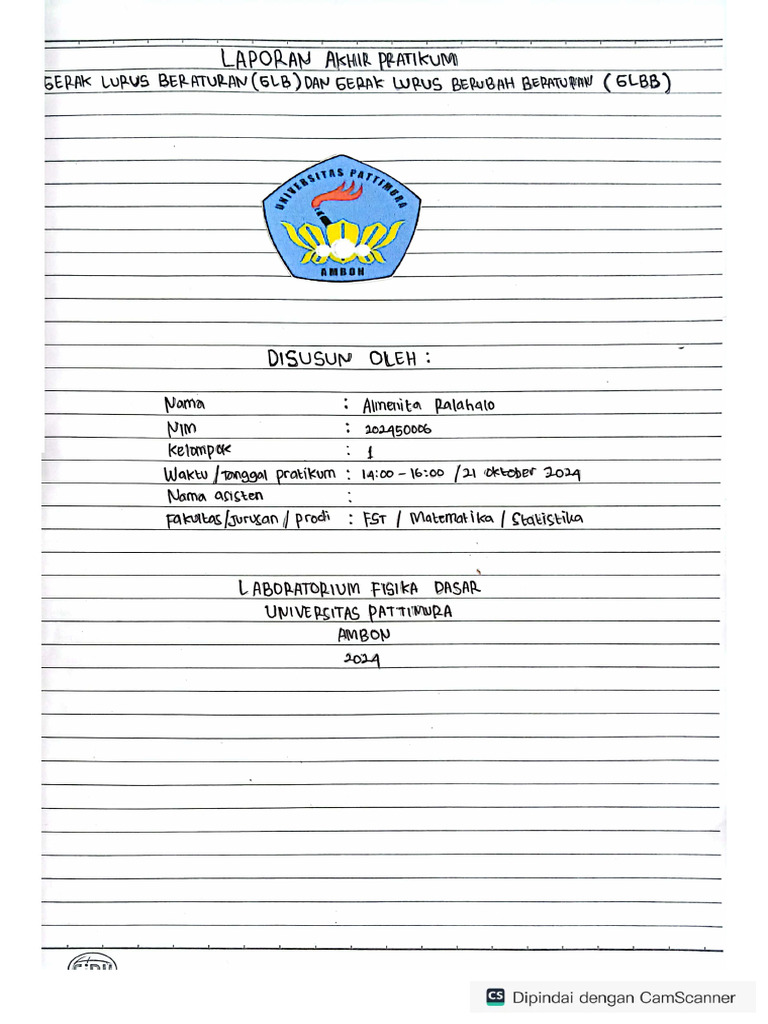 LAPORAN AKHIR PRATIKUM
GERAK LURUS BERATURAN (GLB) DAN GERAK LURUS BERUBAH BERATURAN (GLBB)
UNIVERSITAS PATTIMURA
AMBON
DISUSUN OLEH :
Nama : Almenita Ralahalo
NIM : 202450006
Kelompok : 1
Waktu / Tanggal pratikum : 14:00 - 16:00 / 21 Oktober 2024
Nama asisten :
Fakultas / Jurusan / prodi : FST / Matematika / Statistika
LABORATORIUM FISIKA DASAR
UNIVERSITAS PATTIMURA
AMBON
2024
CS Dipindai dengan CamScanner